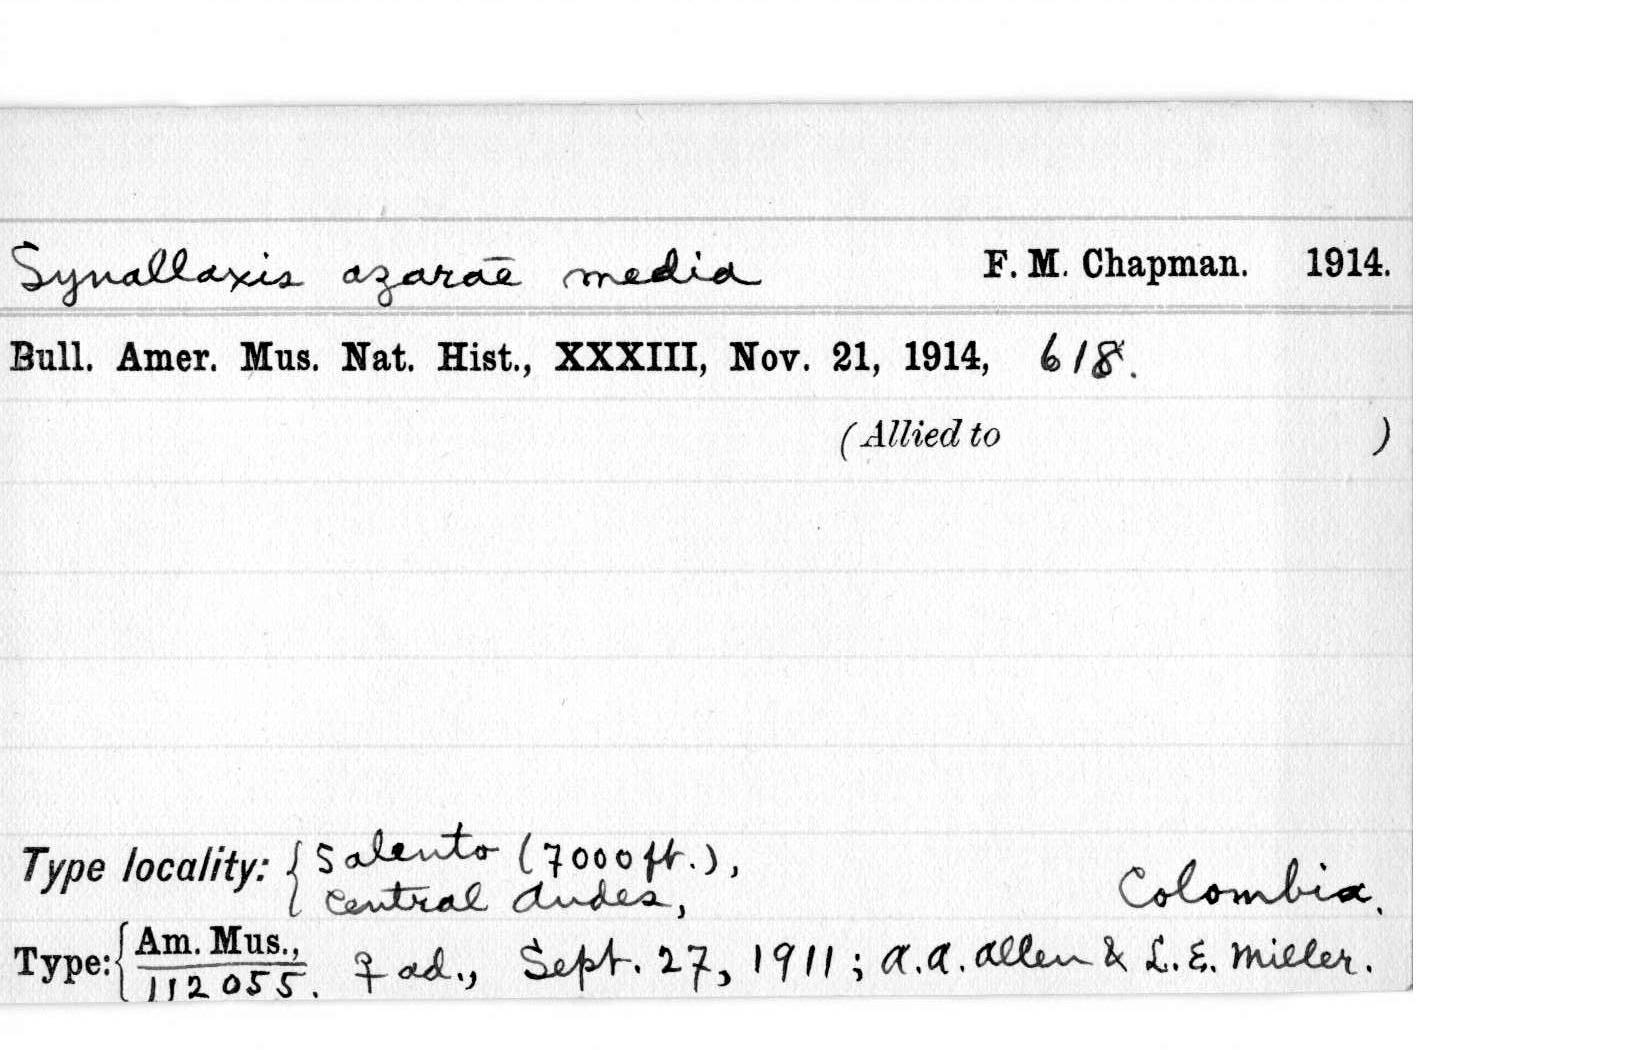 Synallaxis azarae media F. M. Chapman. 1914.
Bull. Amer. Mus. Nat. Hist., XXXIII, Nov. 21, 1914, 618.
(Allied to )
Type locality: { Salento (7000 ft.),
Central Andes, Colombia.
Type: { Am. Mus.,
112055. ♀ ad., Sept. 27, 1911; A. A. Allen & L. E. Miller.